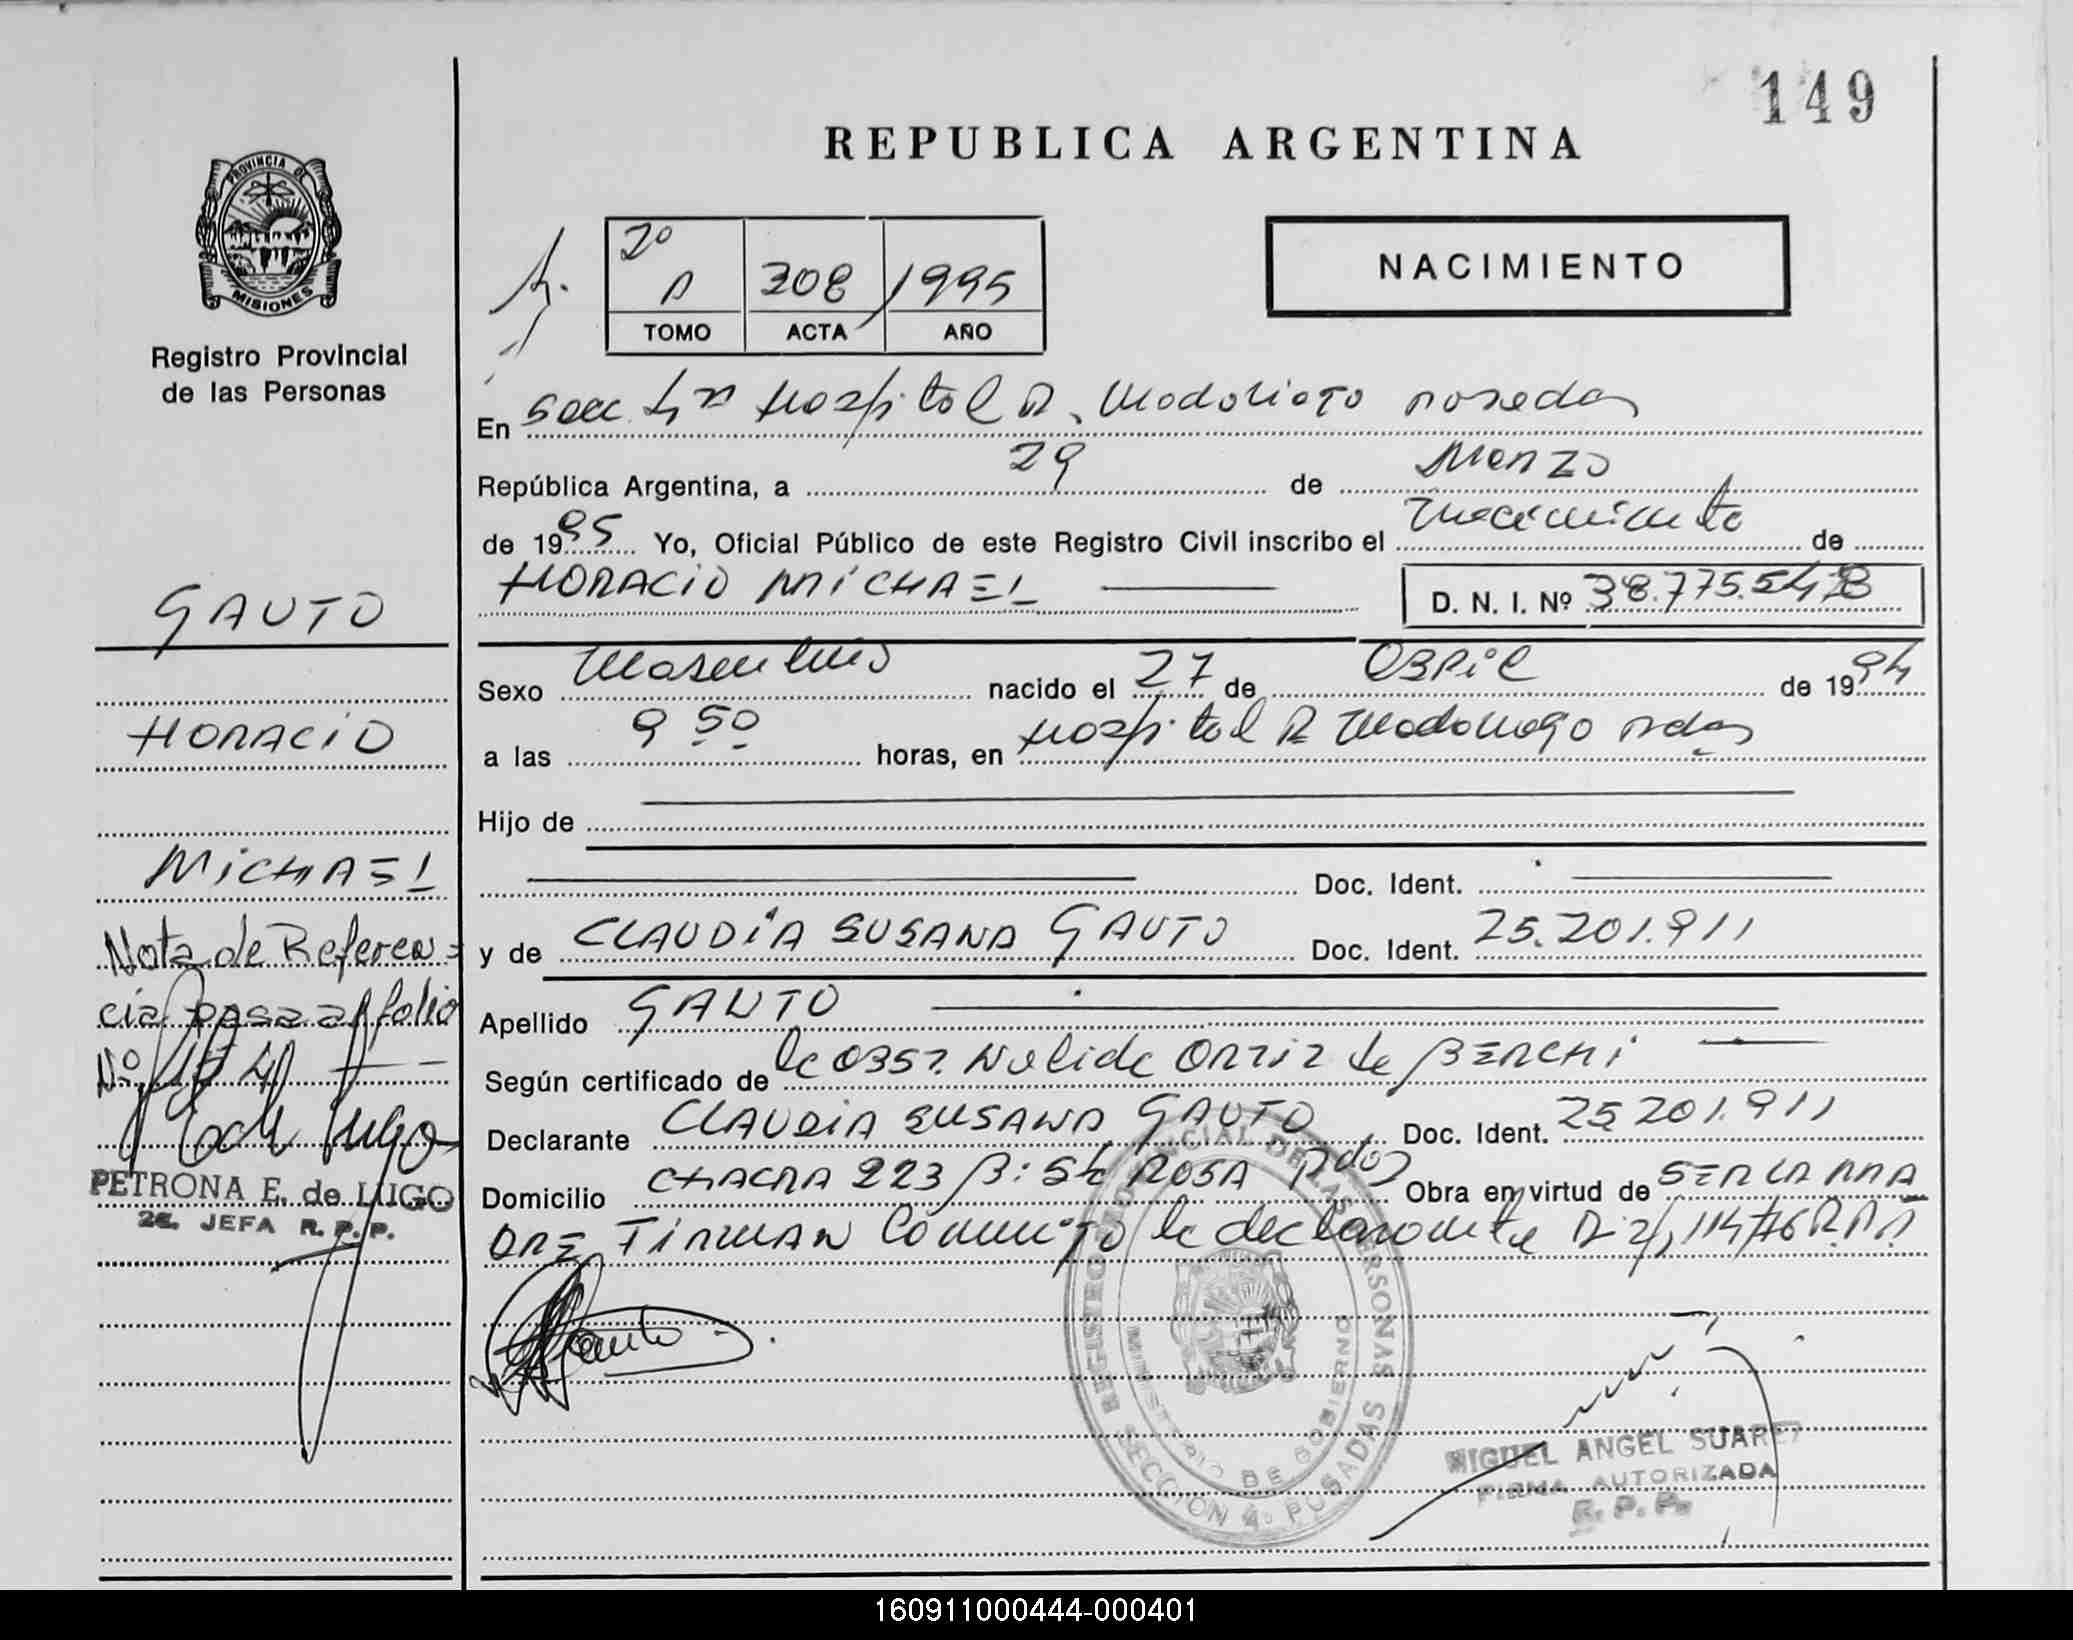 149
REPUBLICA ARGENTINA
PROVINCIA DE
MISIONES
Registro Provincial
de las Personas
2º
A 308 1995
TOMO ACTA AÑO
NACIMIENTO
En Secc. 4ª Hospital R. Madariaga Posadas
República Argentina, a 29 de Marzo
de 1995 Yo, Oficial Público de este Registro Civil inscribo el Nacimiento de
HORACIO MICHAEL D. N. I. Nº 38.775.548
GAUTO
Sexo Masculino nacido el 27 de Abril de 1994
HORACIO
a las 9 50 horas, en Hospital R Madariaga Pdas
Hijo de
MICHAEL
Doc. Ident.
Nota de Referen=
y de CLAUDIA SUSANA GAUTO Doc. Ident. 25.201.911
cia pasa al folio
Apellido GAUTO
Nº
Según certificado de la OBST. Nelida ORTIZ de BERCHI
Declarante CLAUDIA SUSANA GAUTO Doc. Ident. 25 201.911
PETRONA E. de LUGO
2a. JEFA R. P. P.
Domicilio CHACRA 223 Bº Sta ROSA Pdas Obra en virtud de SER LA MA
DRE FIRMAN Conmigo la declarante
Gauto
REGISTRO PROVINCIAL DE LAS PERSONAS
MINISTERIO DE GOBIERNO
SECCION 4a. POSADAS
MIGUEL ANGEL SUAREZ
FIRMA AUTORIZADA
R. P. P.
160911000444-000401